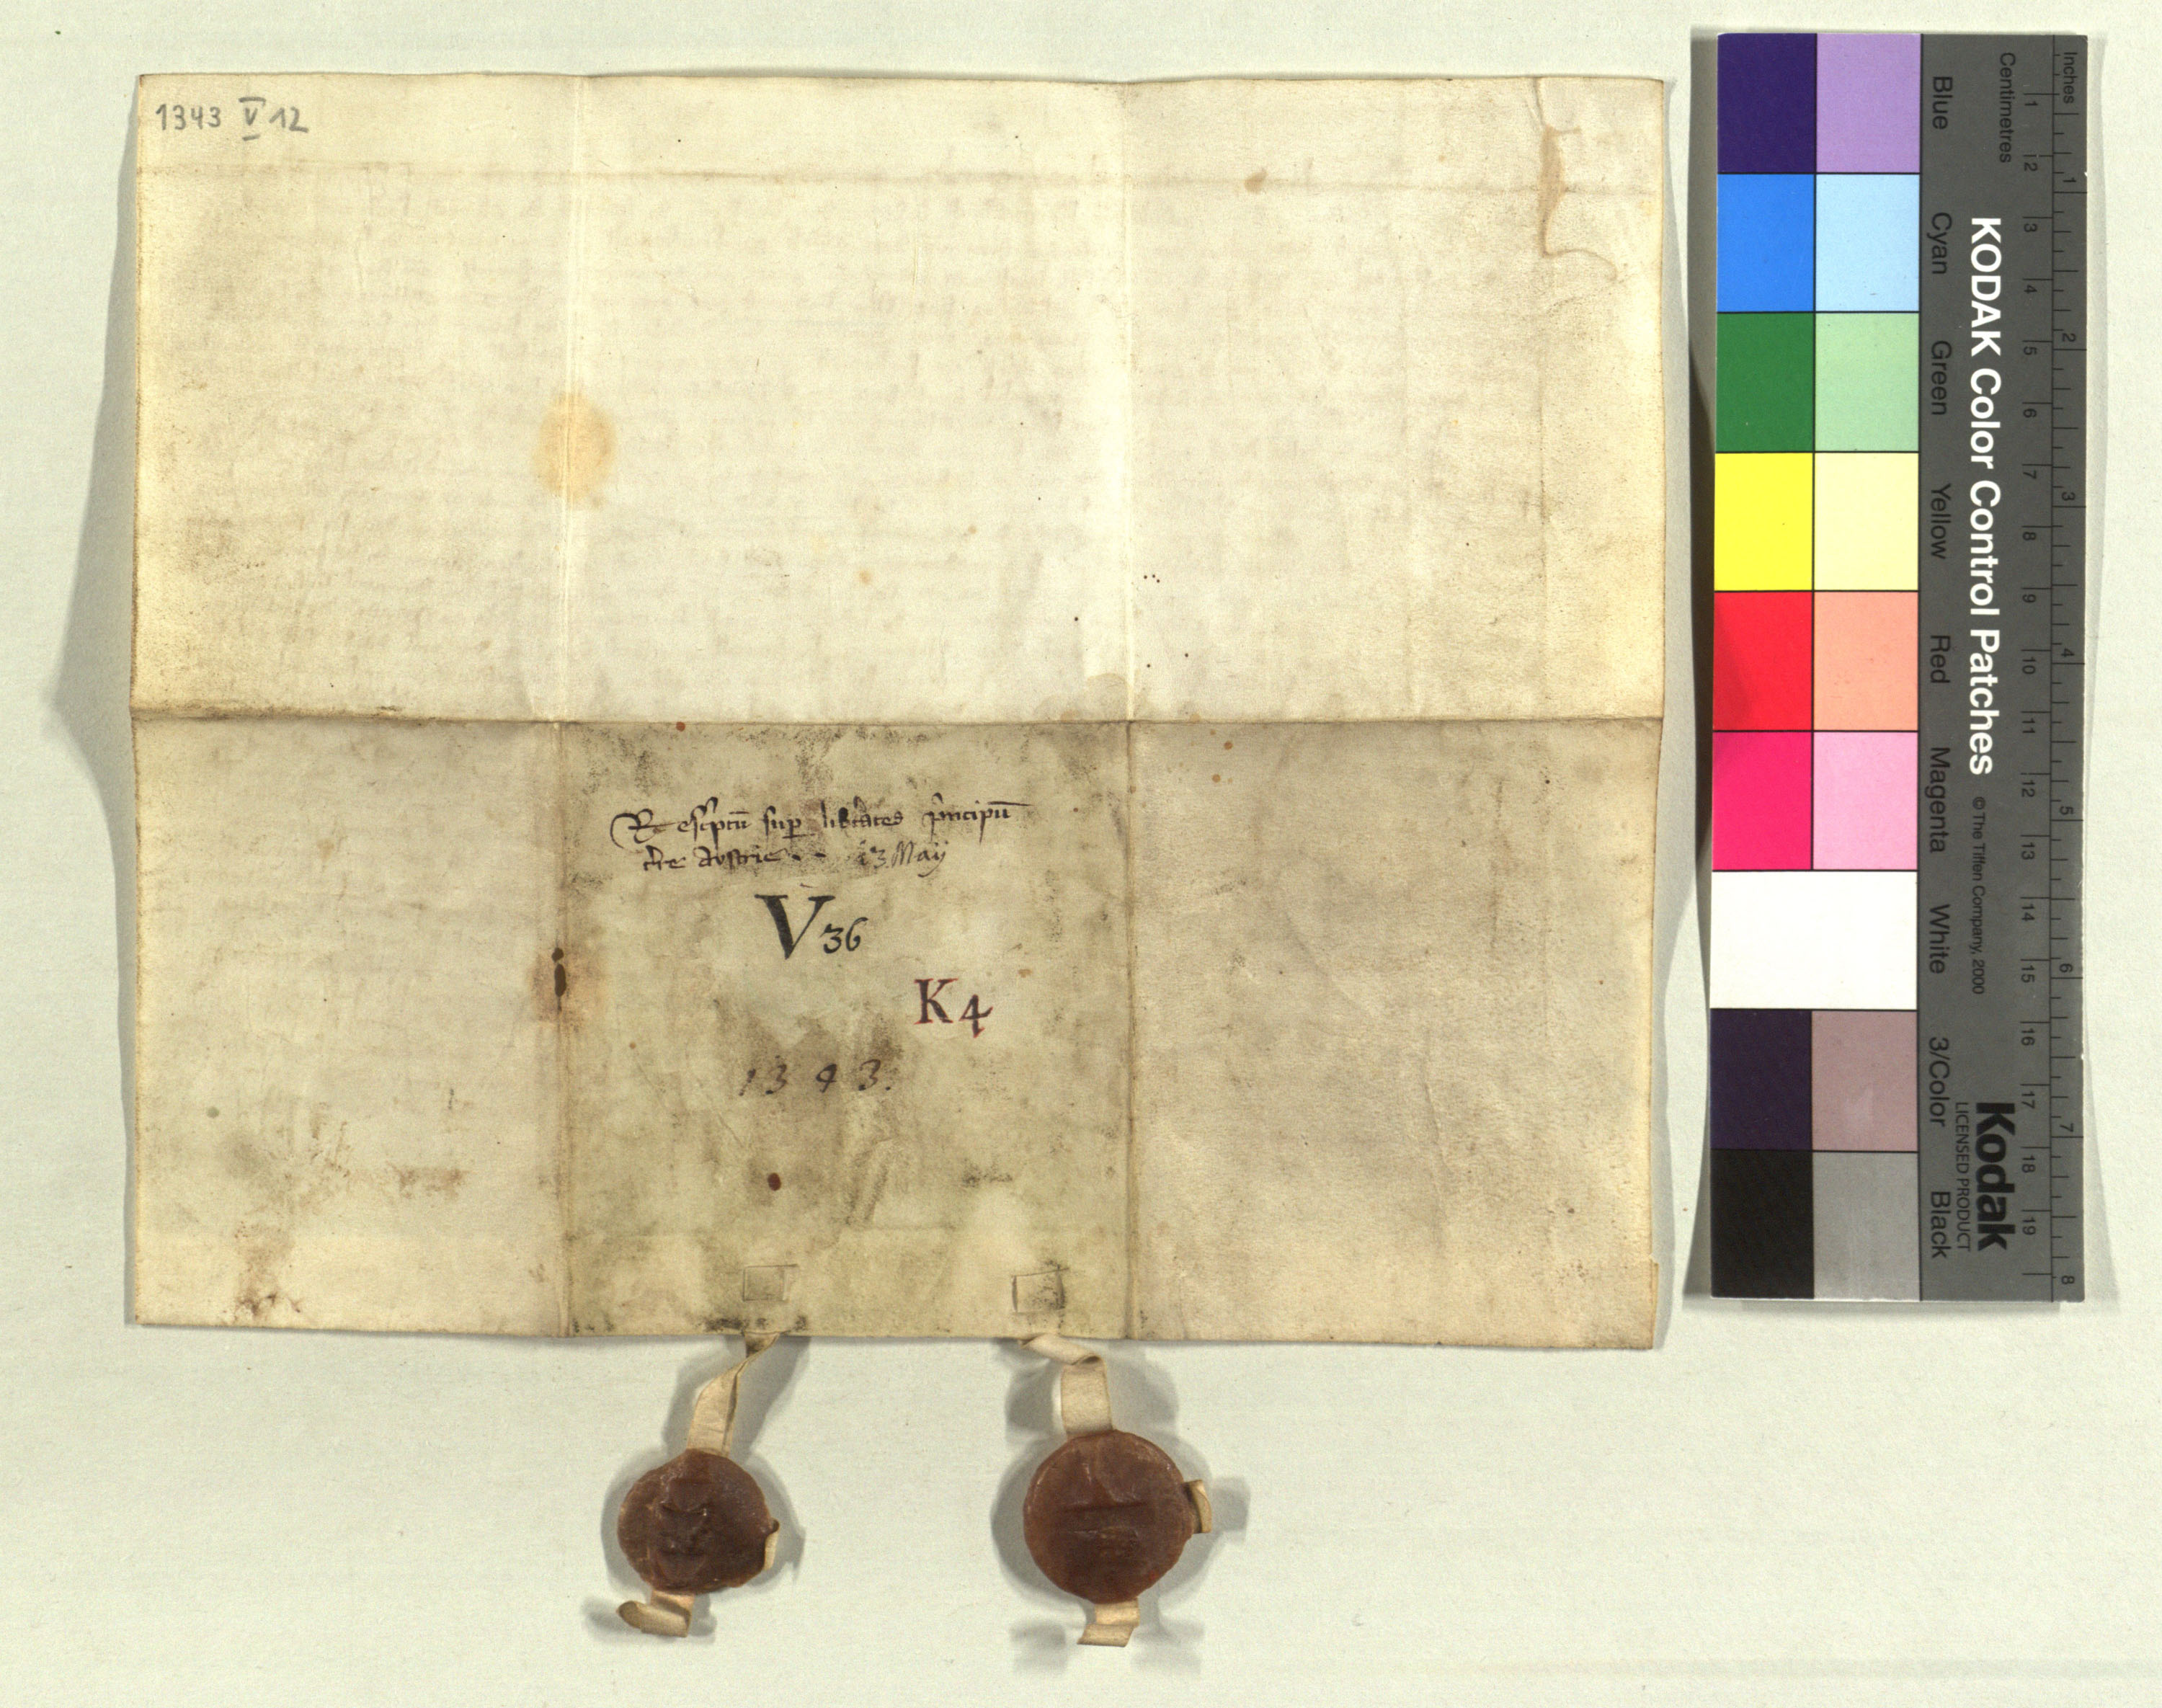 1343 V 12
Rescriptũ sup libtates pncipũ
tre Austrie 13 May
V 36
K 4
1343.
Inches 1 2 3 4 5 6 7 8
Centimetres 1 2 3 4 5 6 7 8 9 10 11 12 13 14 15 16 17 18 19
KODAK Color Control Patches © The Tiffen Company, 2000
Kodak
LICENSED PRODUCT
Blue Cyan Green Yellow Red Magenta White 3/Color Black